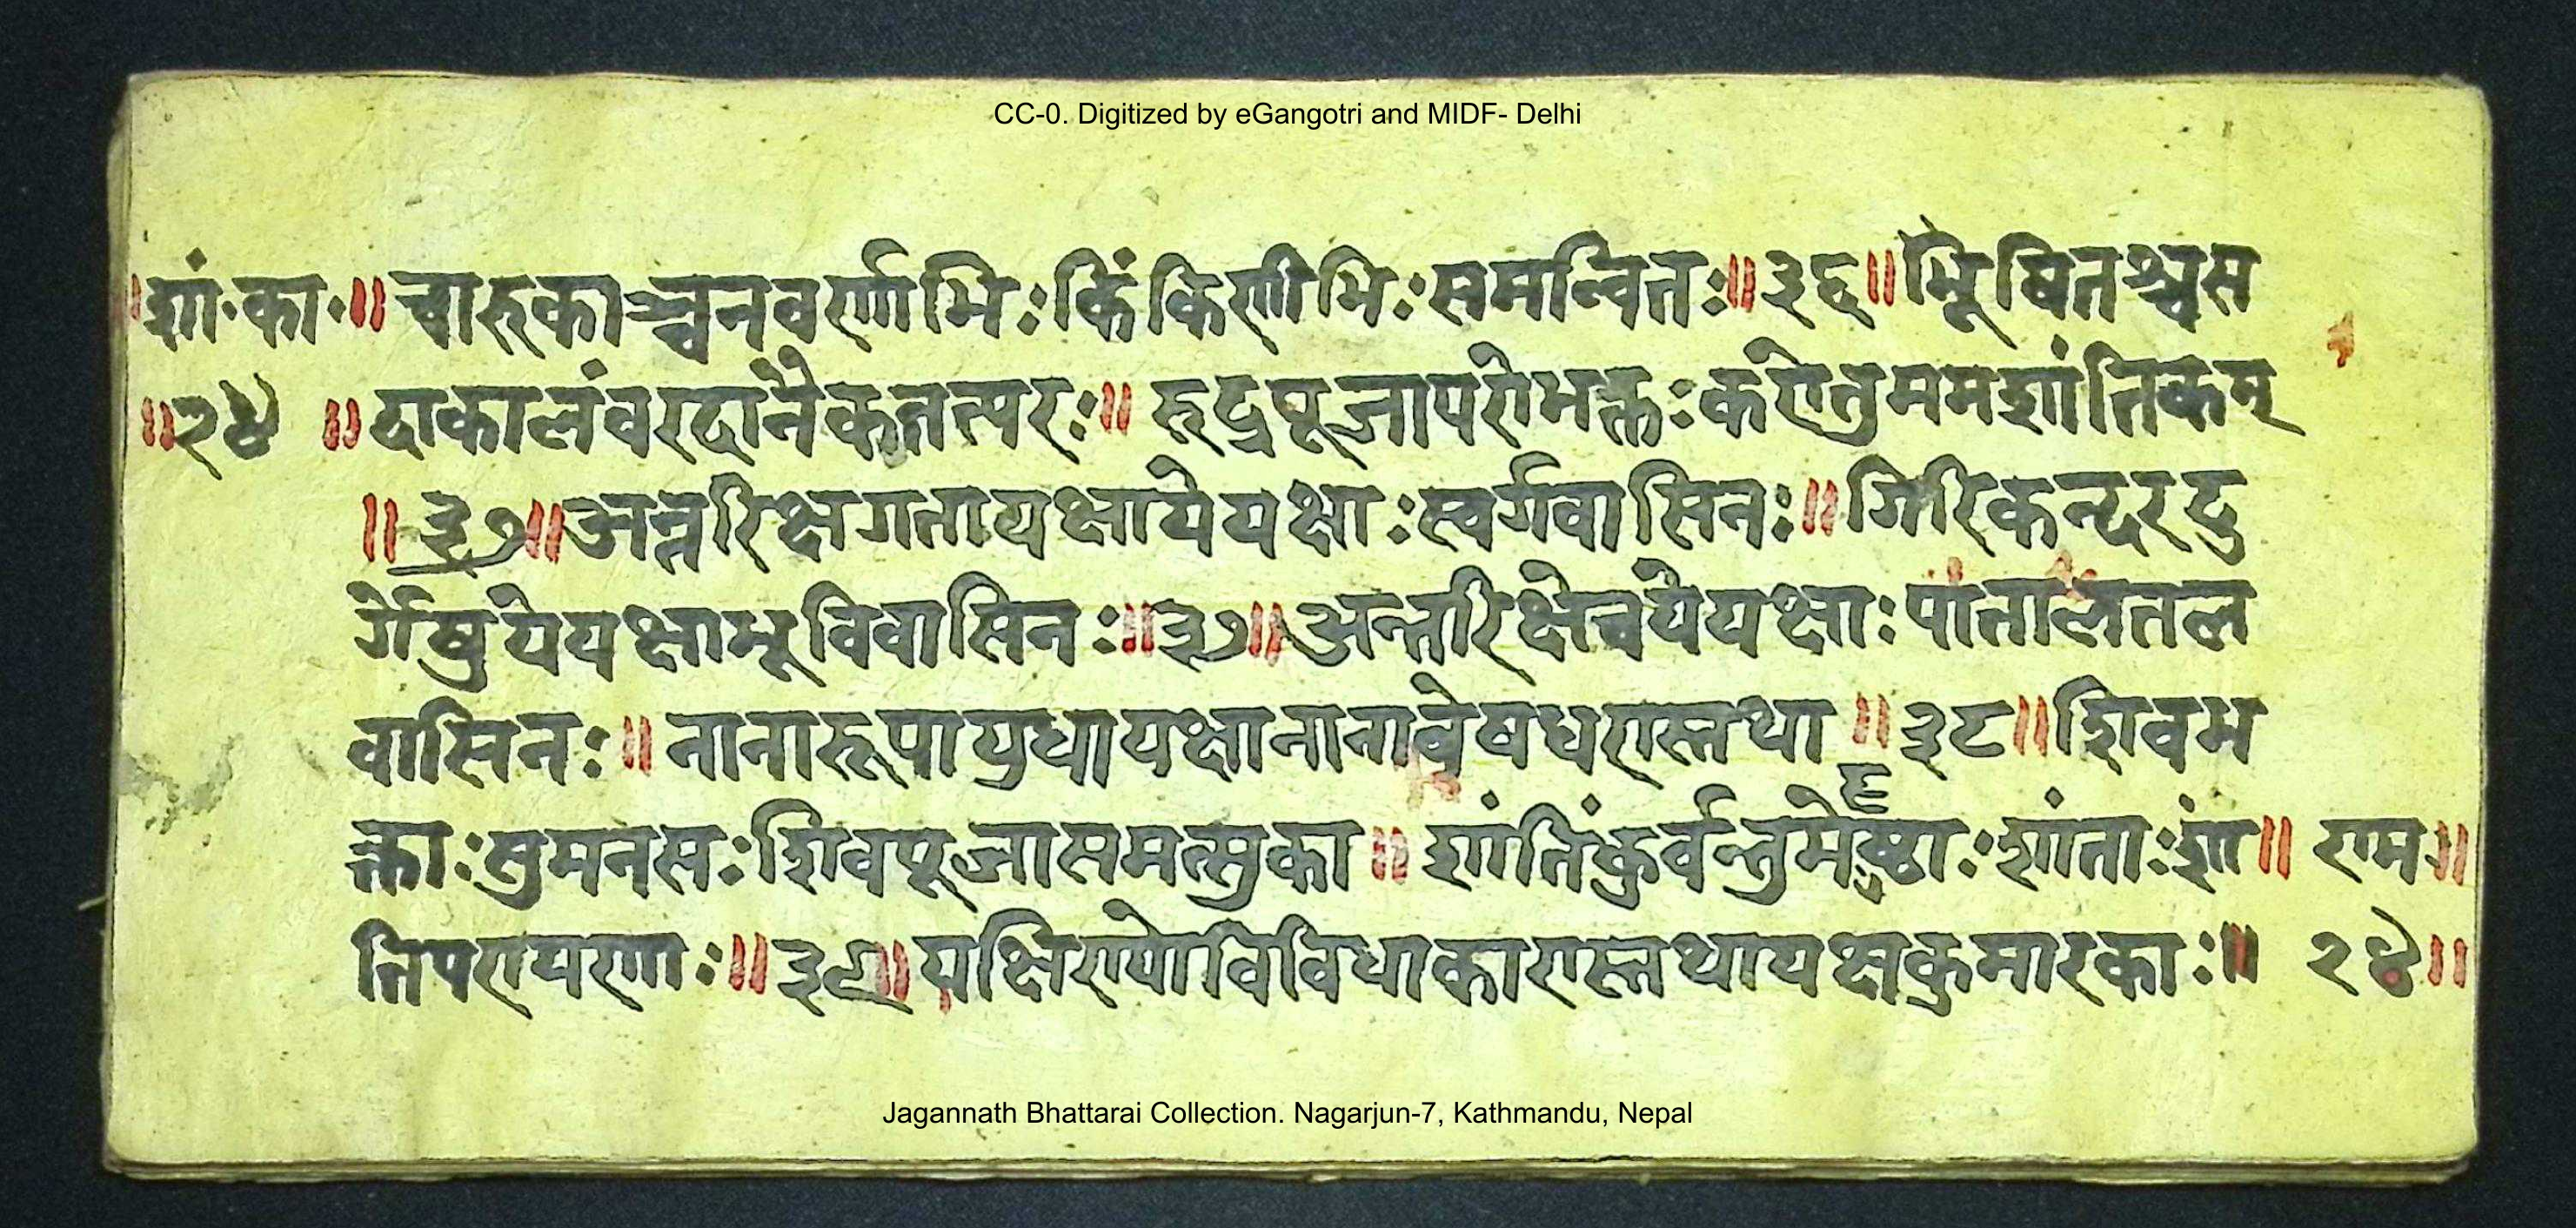 CC-0. Digitized by eGangotri and MIDF- Delhi
॥शां.का.॥ चारुकाञ्चनवर्णाभिःकिंकिणीभिःसमन्वितः॥३६॥भूषितश्चस
॥२४ ॥दाकालंवरदानैकतत्परः॥ रुद्रपूजापरोभक्तःकरोतुममशांतिकम्
॥३७॥अन्तरिक्षगतायक्षायेयक्षाःस्वर्गवासिनः॥गिरिकन्दरदु
र्गेषुयेयक्षाभूविवासिनः॥३७॥अन्तरिक्षेचयेयक्षाःपातालतल
वासिनः॥नानारूपायुधायक्षानानावेषधरास्तथा॥३८॥शिवम
क्ताःसुमनसःशिवपूजासमत्सुका॥शांतिंकुर्वन्तुमेहृष्ठाःशांताःशां॥ राम॥
तिपरायणाः॥३९॥यक्षिण्योविविधाकारास्तथायक्षकुमारकाः॥ २४॥
Jagannath Bhattarai Collection. Nagarjun-7, Kathmandu, Nepal